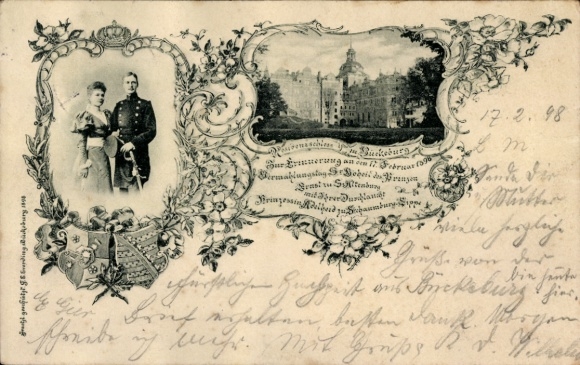 Residenzschloss in Bückeburg
Zur Erinnerung an den 17. Februar 1898
Vermählungstag Sr. Hoheit des Prinzen
Ernst zu S. Altenburg
mit Ihrer Durchlaucht
Prinzessin Adelheid zu Schaumburg-Lippe
17. 2. 98
L. M.
Sende Dir
Mutter
viele herzliche
Grüße von der
fürstlichen Hochzeit aus Bückeburg die heute hier.
Brief erhalten, besten Dank. Morgen
schreibe ich mehr. Mit Gruß K. d. Wilhelm